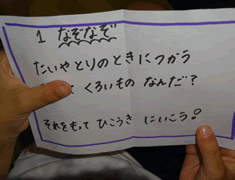 1 なぞなぞ
たいやとりのときにつかう
くろいもの なんだ?
それをもって ひこうき にいこう!